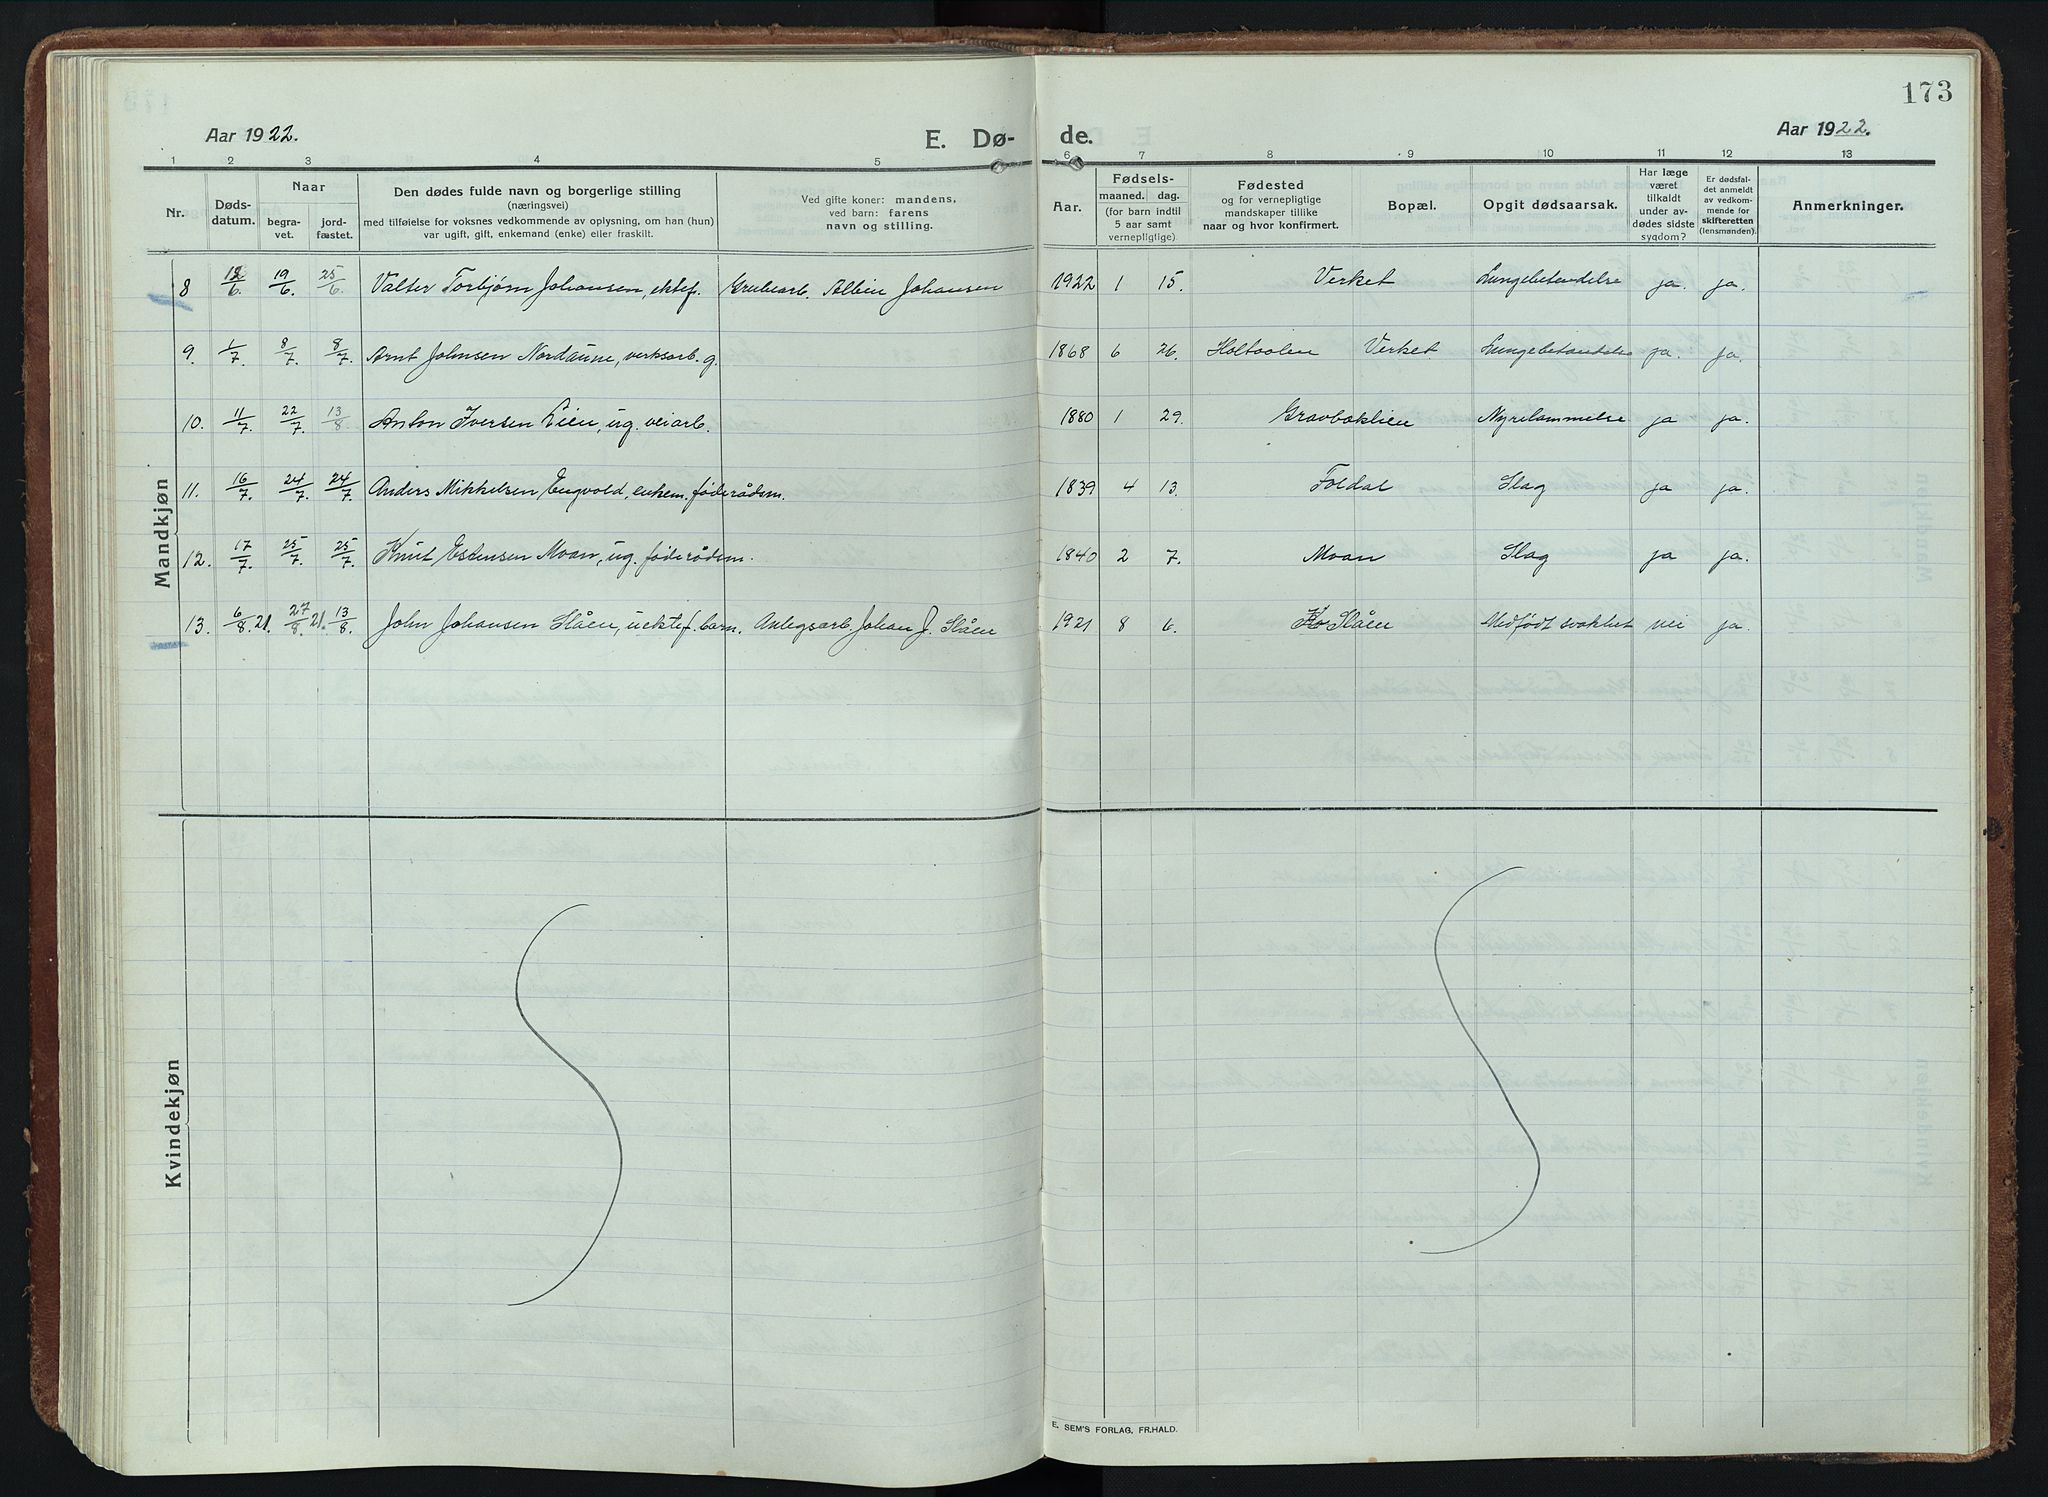 173
Aar 1922.
E. Dø-
de.
Aar 1922.
1 2 3 4 5 6 7 8 9 10 11 12 13
Nr.
Døds-
datum.
Naar
begra-
vet.
jord-
fæstet.
Den dødes fulde navn og borgerlige stilling
(næringsvei)
med tilføielse for voksnes vedkommende av oplysning, om han (hun)
var ugift, gift, enkemand (enke) eller fraskilt.
Ved gifte koner: mandens,
ved barn: farens
navn og stilling.
Aar.
Fødsels-
maaned. dag.
(for barn indtil
5 aar samt
vernepligtige)
Fødested
og for vernepligtige
mandskaper tillike
naar og hvor konfirmert.
Bopæl.
Opgit dødsaarsak.
Har læge
været
tilkaldt
under av-
dødes sidste
sygdom?
Er dødsfal-
det anmeldt
av vedkom-
mende for
skifteretten
(lensmanden).
Anmerkninger.
Mandkjøn
8 12/6 19/6 25/6 Valter Torbjørn Johansen, ektef. Grubearb. Albin Johansen 1922 1 15. Verket Lungebetendelse ja. ja.
9. 1/7 8/7 8/7 Arnt Johnsen Nordaune, verksarb. g. 1868 6 26. Holtaalen Verket Lungebetendelse ja. ja.
10. 11/7 22/7 13/8 Anton Iversen Lien, ug. veiarb. 1880 1 29. Gravbaklien Nyrelammelse ja ja.
11. 16/7 24/7 24/7 Anders Mikkelsen Engvold, enkem. føderådsm. 1839 4 13. Foldal Slag ja ja.
12. 17/7 25/7 25/7 Knut Estensen Moan, ug. føderådsm. 1840 2 7. Moan Slag ja ja.
13. 6/8 21. 27/8 21. 13/8 John Johansen Slåen, uektef. barn. Anlegsarb Johan J. Slåen 1921 8 6. Slåen Medfødt svakhet nei ja.
Kvindekjøn
E. SEM'S FORLAG, FR.HALD.